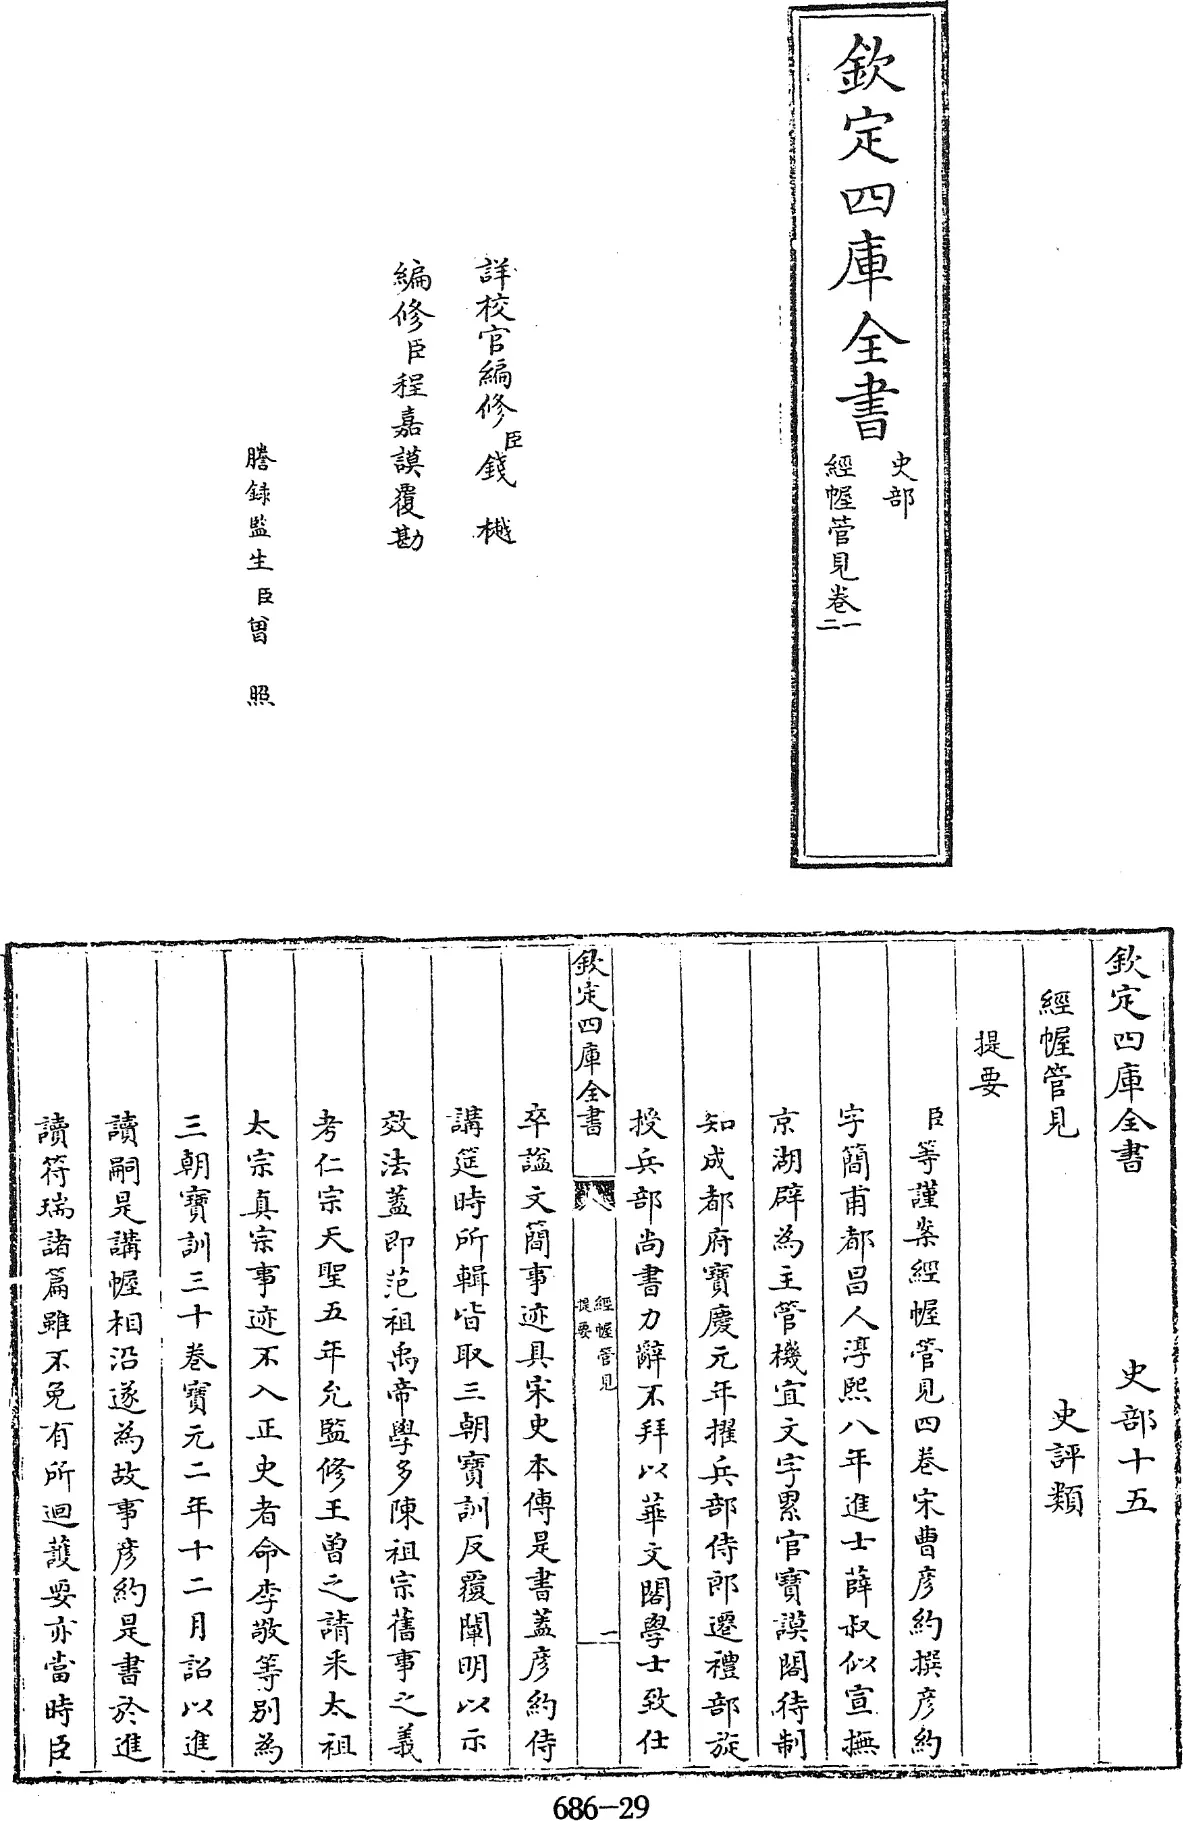 欽定四庫全書
史部
經幄管見卷一
二
詳校官編修臣錢樾
編修臣程嘉謨覆勘
謄錄監生臣曾照
欽定四庫全書 史部十五
經幄管見 史評類
提要
臣等謹案經幄管見四卷宋曹彦約撰彦約
字簡甫都昌人淳熙八年進士薛叔似宣撫
京湖辟為主管機宜文字累官寶謨閣待制
知成都府寶慶元年擢兵部侍郎遷禮部旋
授兵部尚書力辭不拜以華文閣學士致仕
欽定四庫全書
經幄管見
提要
一
卒諡文簡事迹具宋史本傳是書蓋彦約侍
講筵時所輯皆取三朝寶訓反覆闡明以示
效法蓋即范祖禹帝學多陳祖宗舊事之義
考仁宗天聖五年允監修王曾之請采太祖
太宗真宗事迹不入正史者命李敬等別為
三朝寶訓三十卷寶元二年十二月詔以進
讀嗣是講幄相沿遂為故事彦約是書於進
讀符瑞諸篇雖不免有所迴護要亦當時臣
686-29